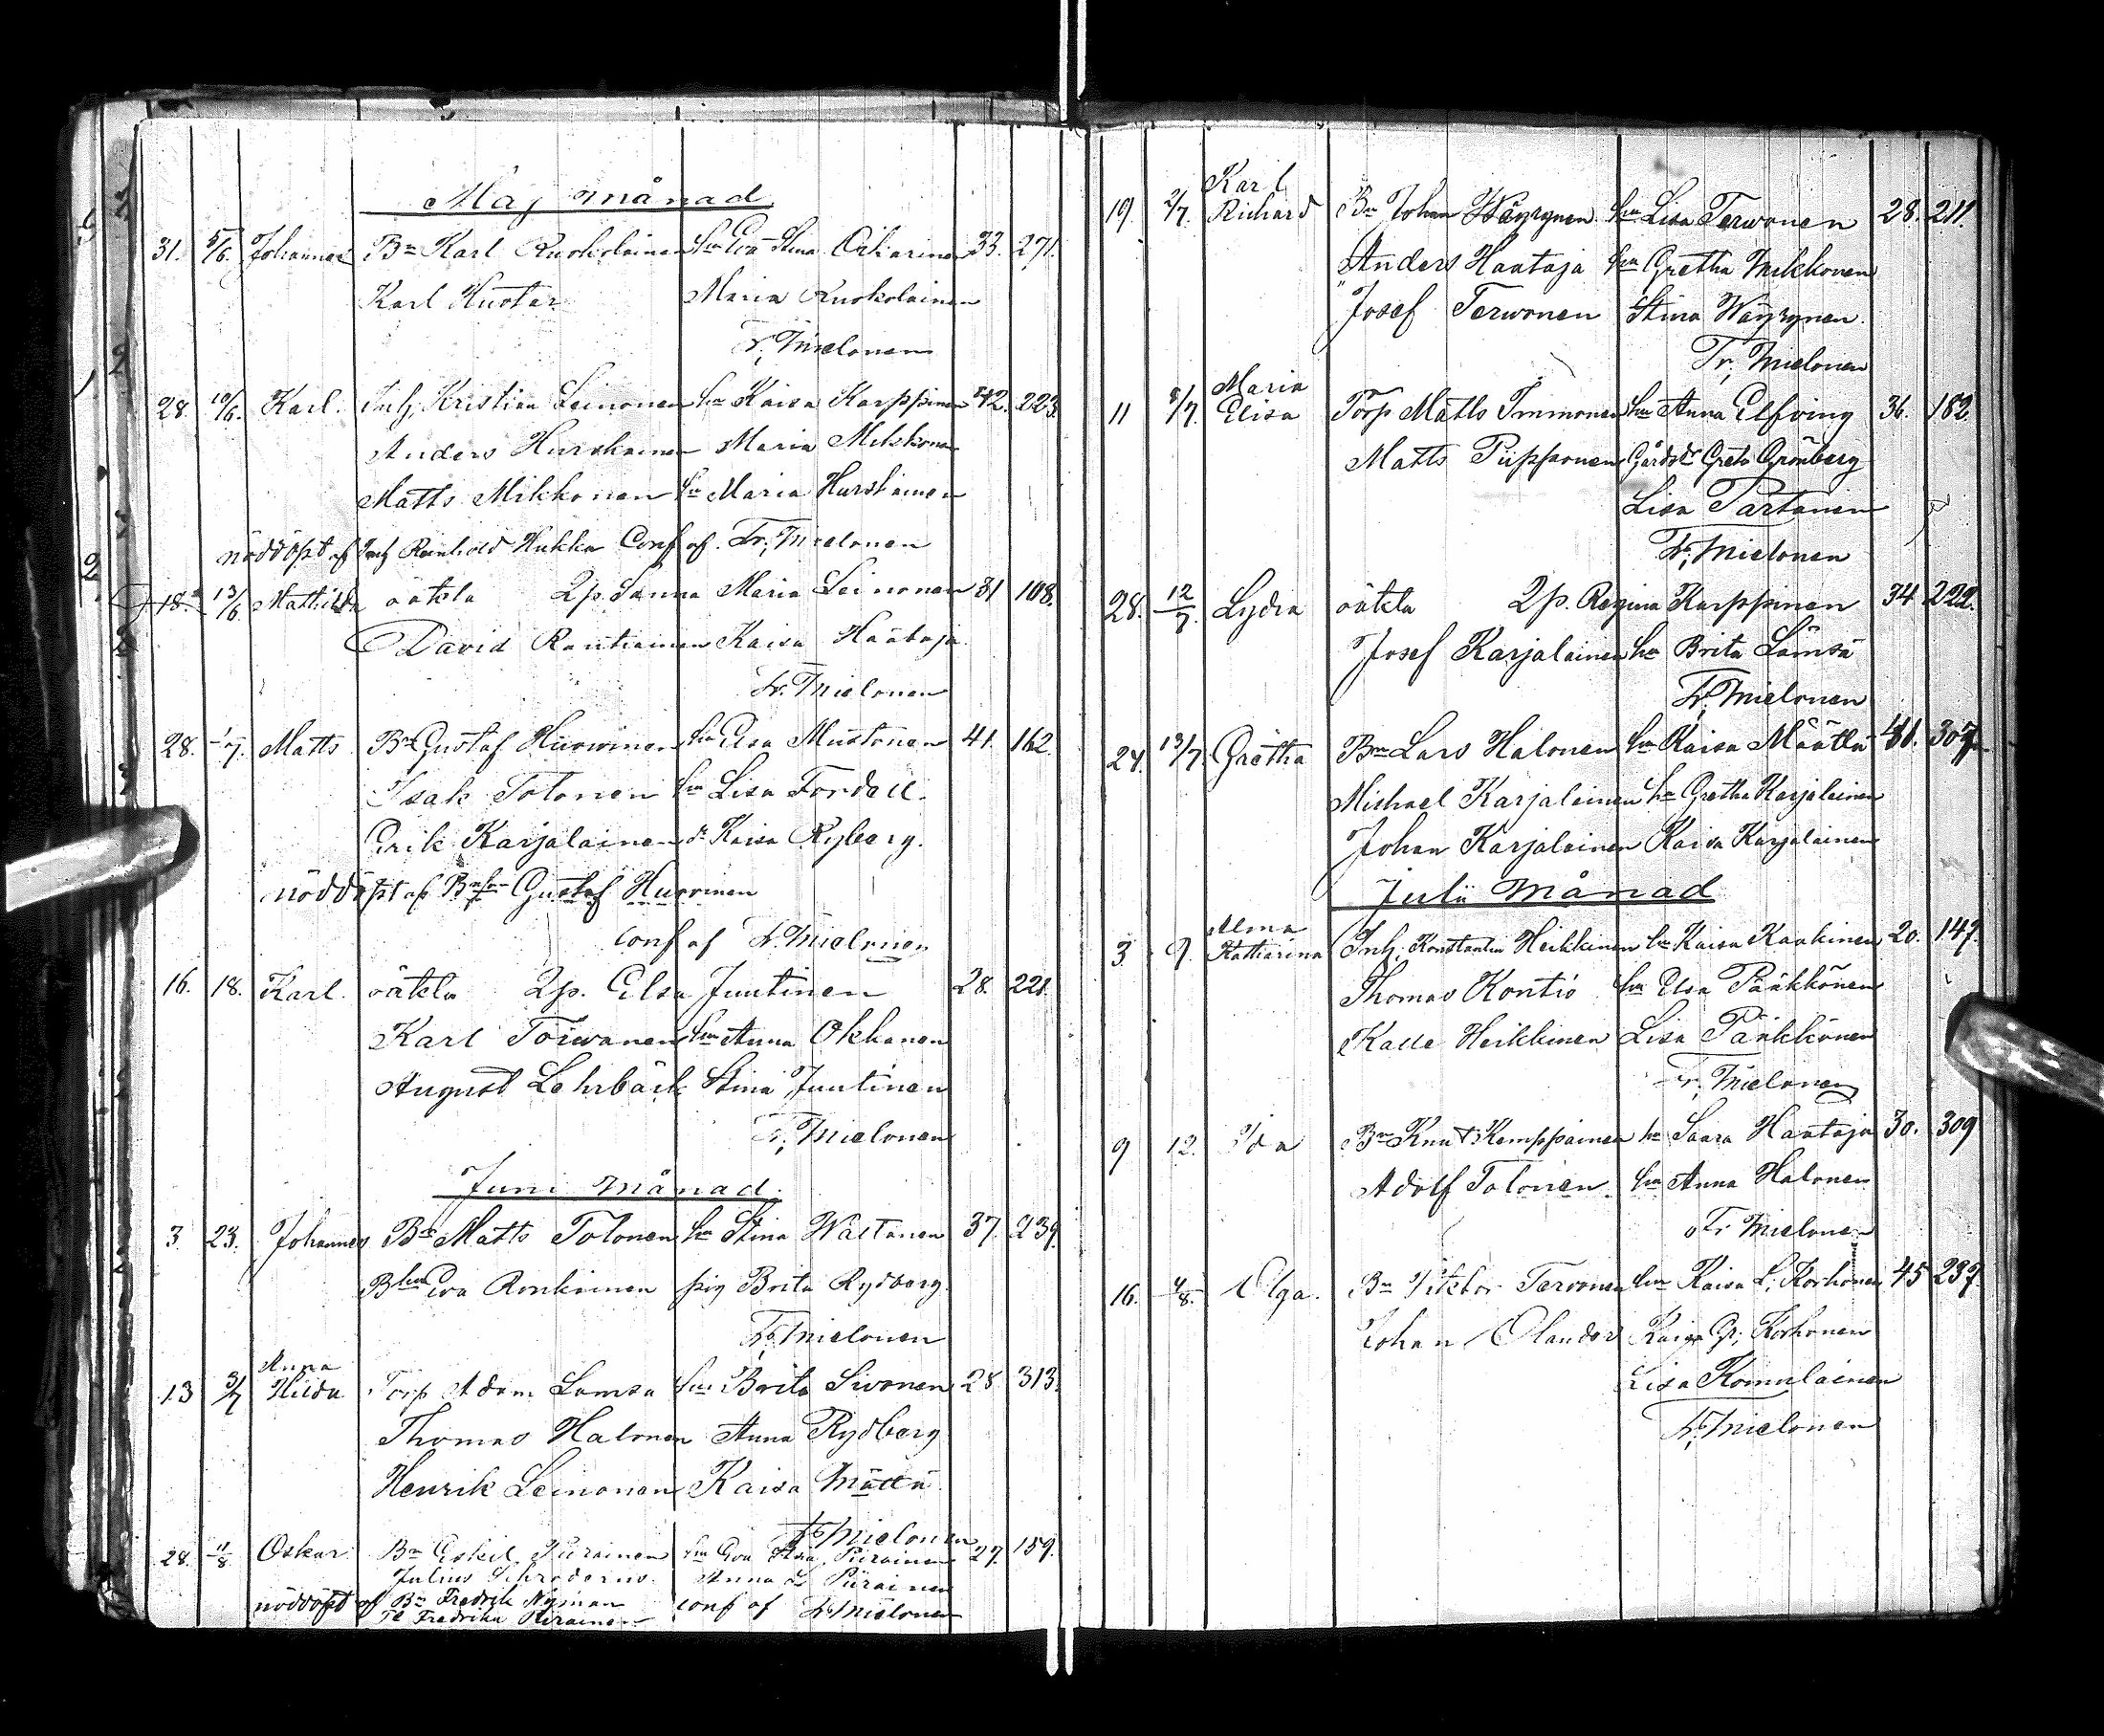 Maj månad
31. 5/6. Johannes Bn Karl Ruokolainen hu Eva Stina 33. 271.
Karl Kustar Maria Ruokolainen
Fr. Mielonen
28. 10/6. Karl. Inh, Kristian Leinonen hu Kaisa Karppinen 42. 223.
Anders Hurskainen Maria Mikkonen
Matts Mikkonen hu Maria Hurskainen
nöddöpt af Inh Reinhold Hukka Conf af. Fr; Mielonen
18. 13/6 Mathilda oäkta 2p. Sanna Maria Leinonen 31 108.
David Rautiainen Kaisa Haataja
Fr. Mielonen
28. 1/7. Matts Bn Gustaf Huovinen hu Elsa Mustonen 41. 162.
Isak Tolonen hu Lisa Fordell.
Erik Karjalainen dr Kaisa Ryberg.
nöddöpt af Gustaf Huovinen
Conf af Fr. Mielonen
16. 18. Karl. oäkta 2p. Elsa Juutinen 28. 221.
Karl Toiwanen hu Anna Okkonen
August Lehrbäck Stina Juutinen
Fr, Mielonen
Juni månad.
3. 23. Johannes Bn Matts Tolonen hu Stina Waltanen 37. 239.
Bhu Eva Ronkainen pig Brita Rydberg.
Fr. Mielonen
Anna
13 3/7 Hilda Torp Adam Lamsa hu Brita Sivonen 28 313.
Thomas Halonen Anna Rydberg
Henrik Leinonen Kaisa Määttä
Fr Mielonen
28. 11/8 Oskar Bn Eskil Piirainen hu Eva Stina Piirainen 27. 159.
Julius Schroderus. Anna Piirainen
nöddöpt af Bn Fredrik Nyman Conf af Fr Mielonen
Fredrika Piirainen
Karl
19. 2/7. Richard Bn Johan Wäyrynen hu Lisa Terwonen 28. 211.
Anders Haataja hu Gretha Mikkonen
Josef Terwonen Stina Wäyrynen.
Fr; Mielonen
Maria
11 8/7. Elisa Torp Matts Immonen hu Anna Elfving 36. 182
Matts Piipponen Gårdsdr Greta Grönberg
Lisa Partanen
Fr, Mielonen
28. 12/7. Lydia oäkta 2p. Regina Karppinen 34 222.
Josef Karjalainen hu Brita Lämsä
Fr, Mielonen
24. 13/7 Gretha Bn Lars Halonen hu Kaisa Määttä 41. 307
Michael Karjalainen hu Gretha Karjalainen
Johan Karjalainen Kaisa Karjalainen
Julii Månad
Alma
3. 9. Katharina Inh, Konstantin Heikkinen hu Kaisa Kaakinen 20. 147.
Thomas Kontio hu Elsa Pääkkönen
Kalle Heikkinen Lisa Pääkkönen
Fr, Mielonen
9 12. Ida Bn Knut Kemppainen hu Saara Haataja 30. 309
Adolf Tolonen. hu Anna Halonen
Fr Mielonen
16. 4/8. Olga. Bn Viktor Tervonen hu Kaisa L, Korhonen 45 237.
Johan Olander Kaisa Gr; Korhonen
Lisa Komulainen
Fr, Mielonen